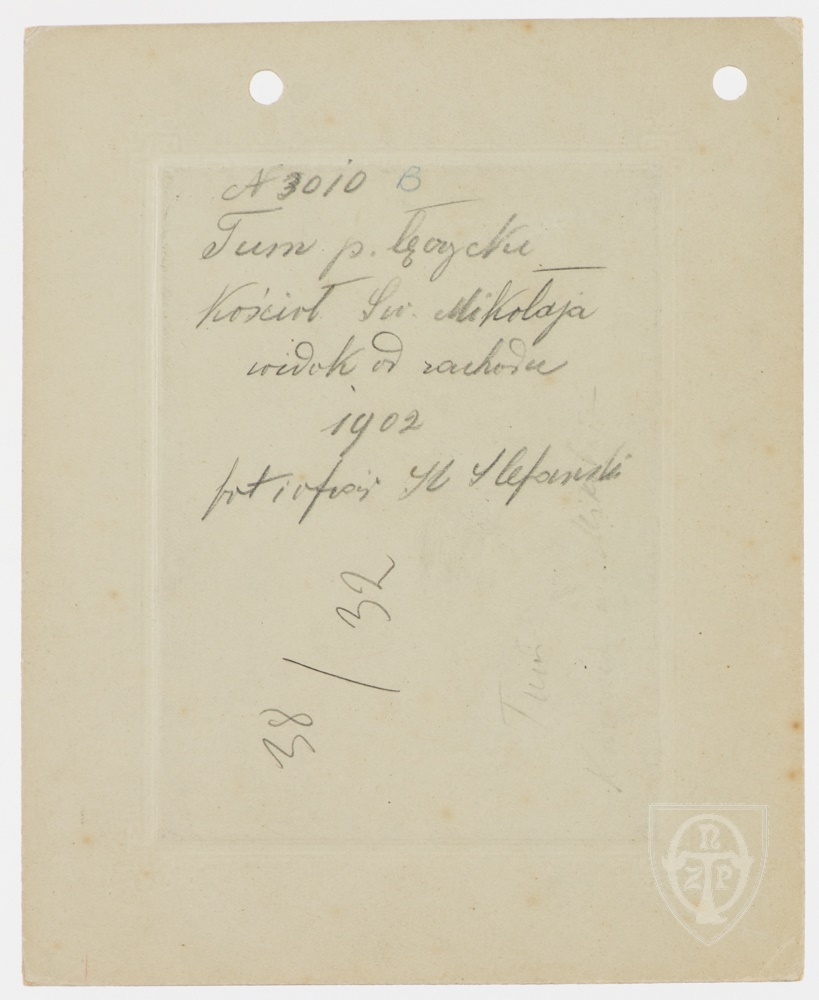 N 3010 B
Tum p. łęczycki
Kościoł Św. Mikołaja
widok od zachodu
1902
fot i ofiar St Stefanski
38 / 32
Tum
TNZP